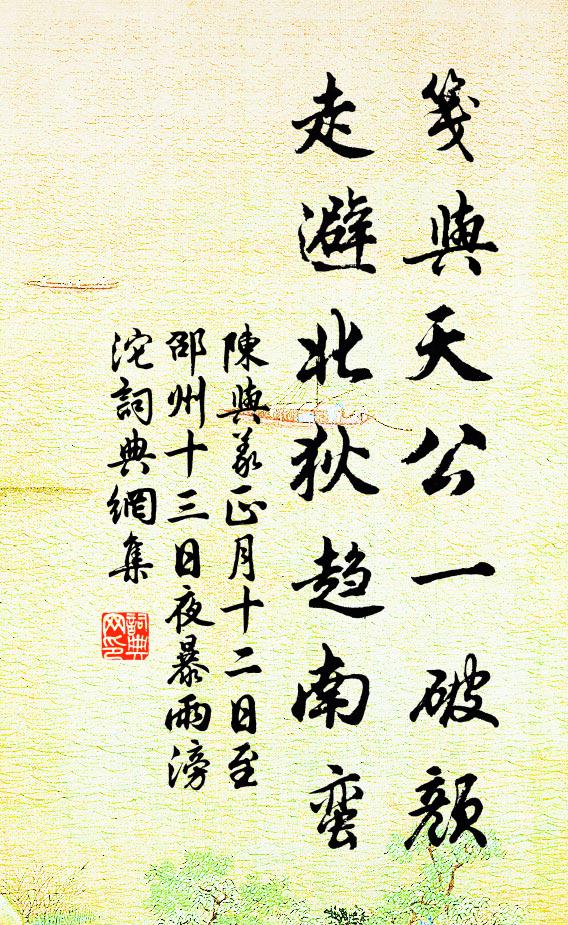 笺與天公一破顏
走避北狄趋南蛮
陳與義正月十二日至
邵州十三日夜暴雨滂
沱詞典網集
詞典网印